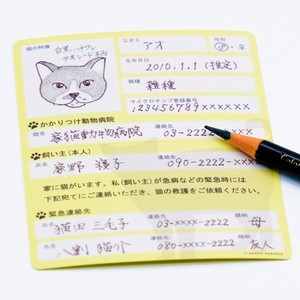 猫の特徴
なまえ
性別
アオ
♂・♀
白黒ハチワレ
タキシード柄
生年月日
2010.1.1(推定)
猫種
雑種
マイクロチップ登録番号
123456789××××××
かかりつけ動物病院
連絡先
猫動物病院
03-2222-××
飼い主(本人)
連絡先
子
090-2222-×××
家に猫がいます。私(飼い主)が急病などの緊急時には
下記宛てにご連絡いただき、猫の救護をご依頼ください。
緊急連絡先
連絡先
続柄
猫田 三毛子
03-××××-2222
母
連絡先
続柄
八割 猫介
080-××××-2222
友人